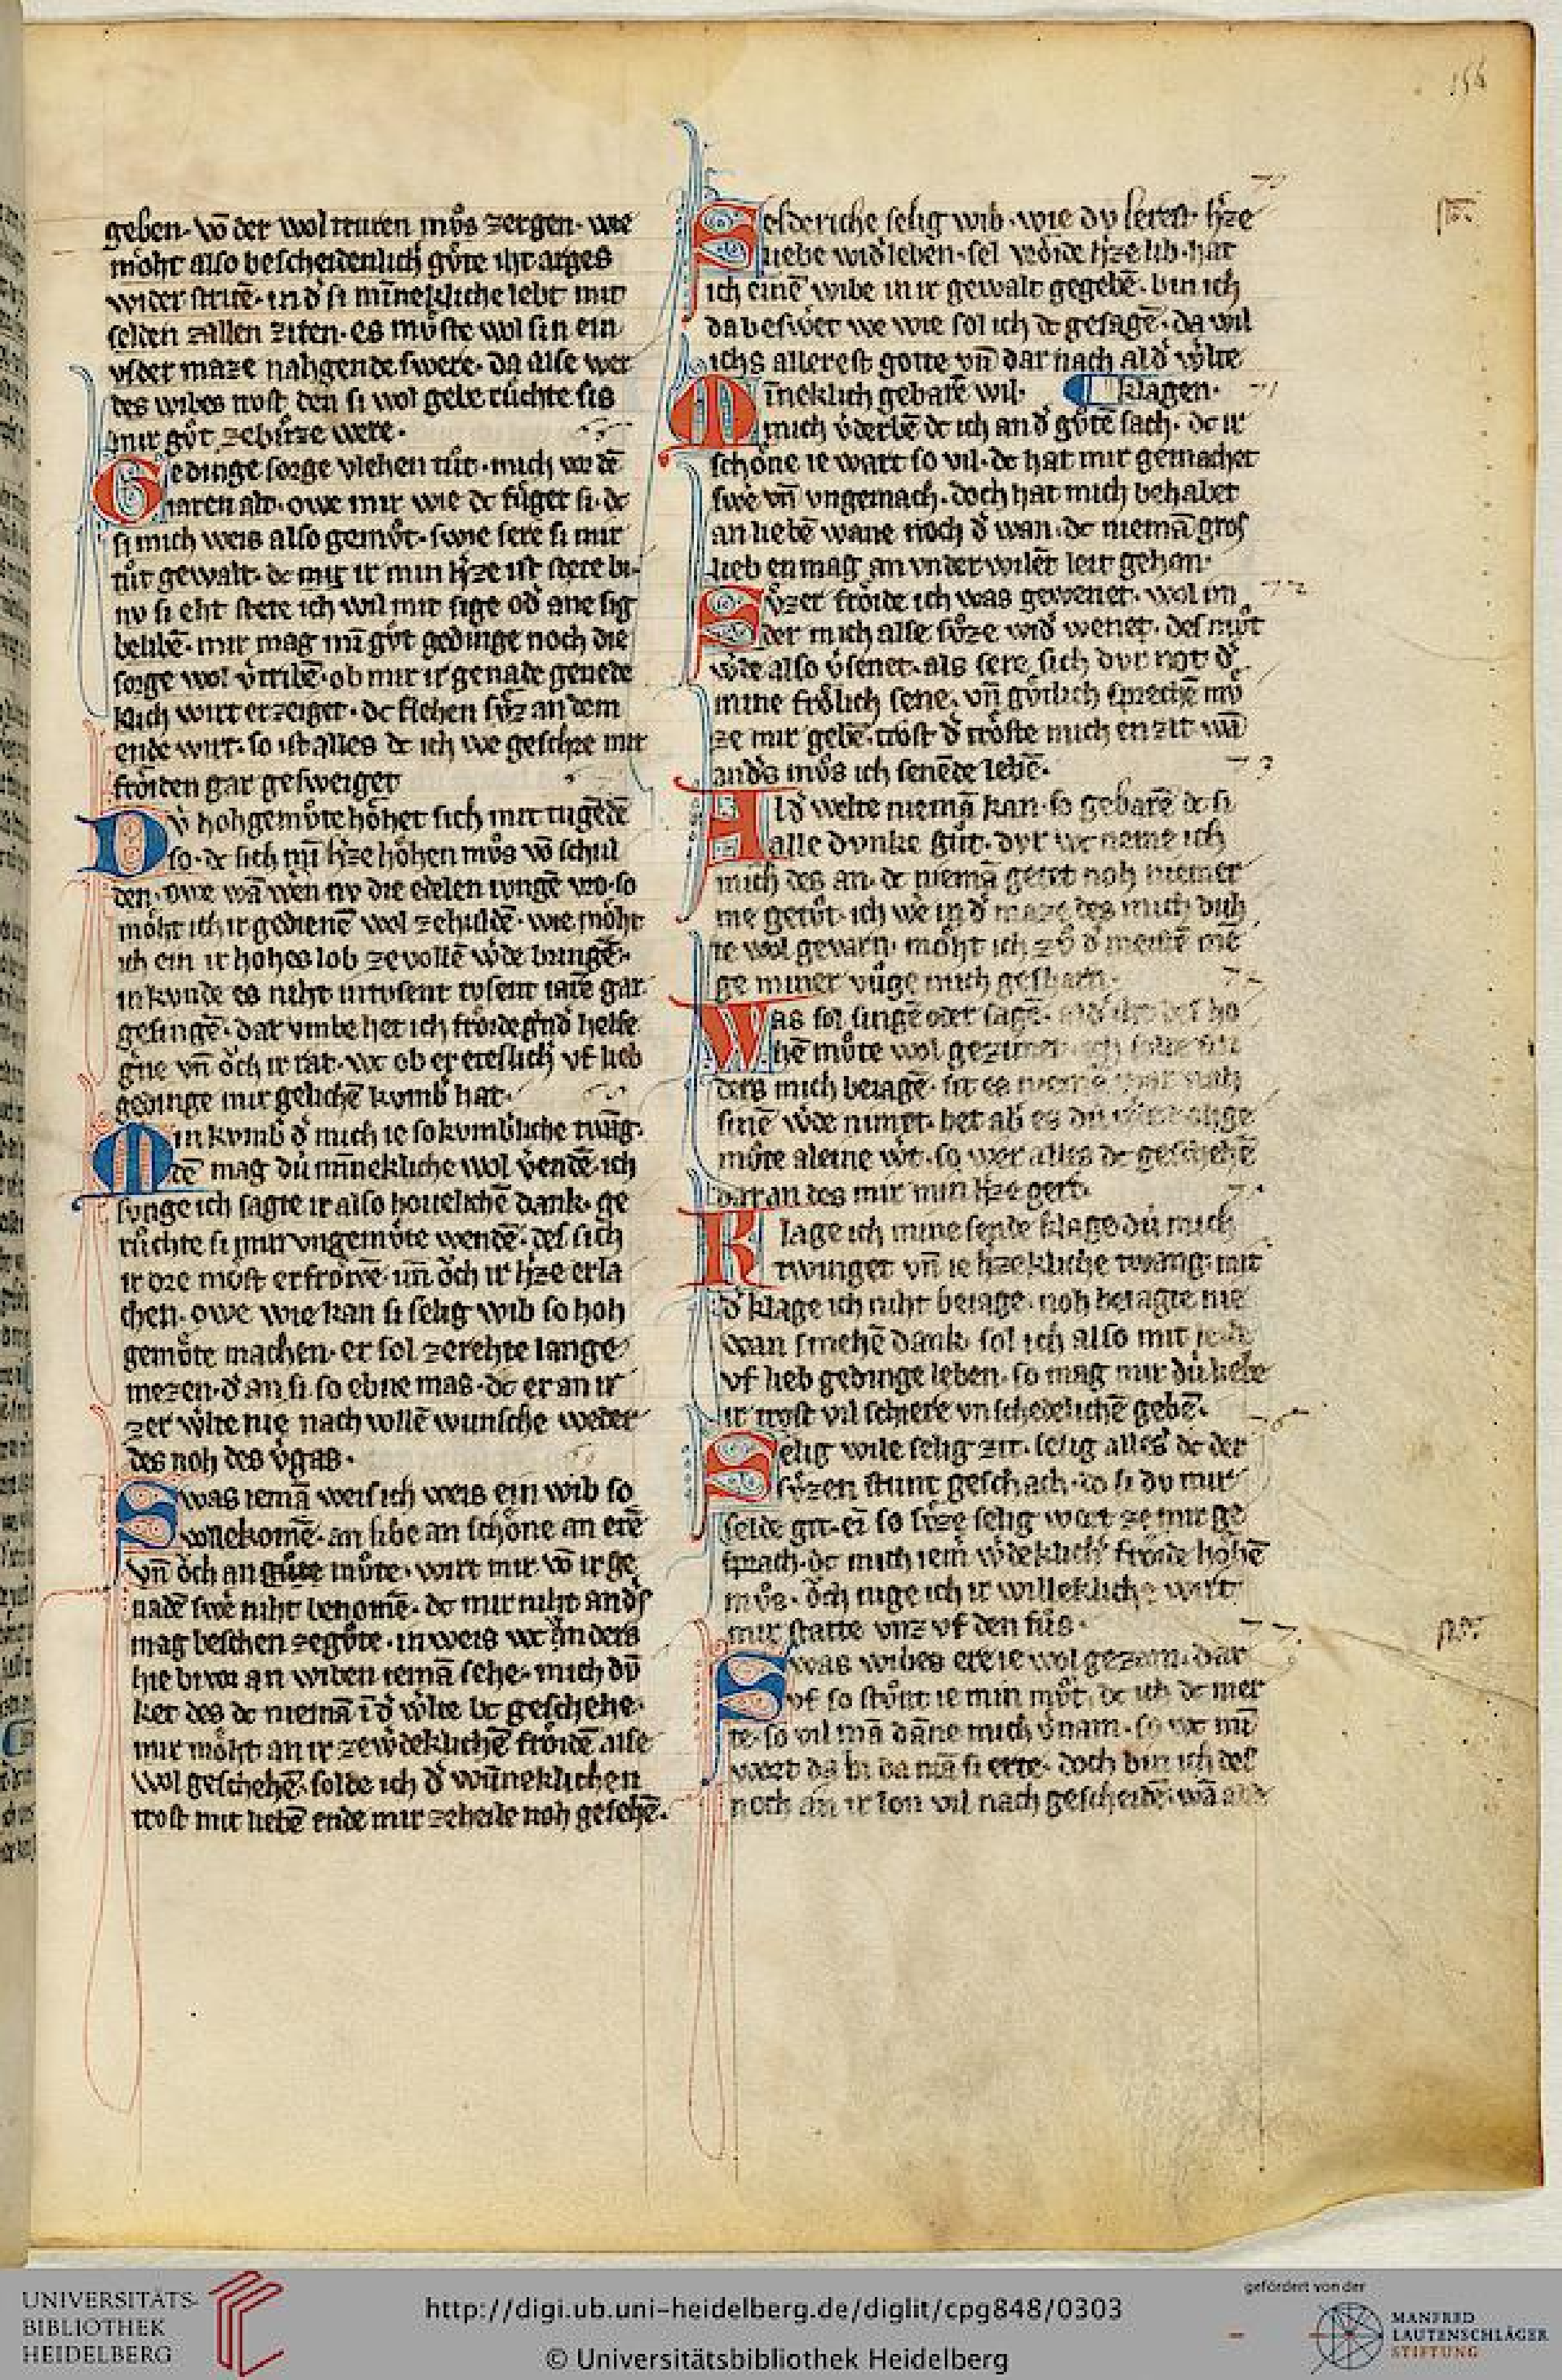 154
geben· vō der wol truren mvͦs zergen· wie
mohte also bescheidenlich gvͤte iht arges
wider striten· in d̾ si miñekliche lebt mit
selden zallen ziten· es mvͤste wol sin ein
vsser maze nahgende swere· da alse wer
des wibes trost den si wol gebe rüchte sis
mir gvͦt zebvͤrze were·
Gedinge sorge vlehen tuͦt· mich vor dē
iaren alt· owe mir wie dc fuͤget si· dc
si mich weis also gemvͦt· swie sere si mir
tuͦt gewalt· dc mit ir min h̾ze ist stete bi·
nv si eht stete ich wil mit sige od̾ ane sig
belibē· mir mag mī gvͦt gedinge noch die
sorge wol v̾tribē· ob mir ir genade genede
klich wirt erzeiget· dc flehen svͤz an dem
ende wirt· so ist alles dc ich we geschre mit
froͤiden gar gesweiget
Dv hohgemvͤte hoͤhet sich mit tugēdē
so· dc sich mī h̾ze hoͤhen mvͦs vō schul
den· owe wā wen nv die edelen iungē vro· so
moͤht ich ir gedienē wol zehuldē· wie moͤht
ich ein ir hohes lob ze vollē w̾de bringē·
in kvnde es niht in tvsent tvsent iarē gar
gesingē· dar vmbe het ich froͤide gnd̾ helfe
gne vn̄ oͮch ir rat· wc ob er eteslich vf lieb
gedinge mir gelichē kvmb̾ hat·
Min kvmb̾ d̾ mich ie so kvmb̾liche twāg·
dē mag dü miñekliche wol v̾endē· ich
svnge ich sagte ir also houelichē dank· ge
ruͤchte si mir vngemvͤte wendē· des sich
ir ore mvͤst erfroͤwē· un̄ oͮch ir h̾ze erla
chen· owe wie kan si selig wib so hoh
gemvͤte machen· er sol zerehte lange
mezen· d̾ an si· so ebne mas· dc er an ir
zer w̾lte nie nach vollē wunsche weder
des noh des v̾gas·
Swas iemā weis ich weis ein wib so
vollekomē· an libe an schoͤne an erē
vn̄ oͮch an guͤte mvͦte· wirt mir vō ir ge
nadē swe niht benomē· dc mir niht and̾s
mag beschen zegvͦte· in weis wc anders
hie bivor an wiben iemā sehe· mich dv̄
ket des dc niemā ī d̾ w̾lte bc geschehe·
mir moͤht an ir zew̾deklichē froͤidē alse
wol geschehē· solde ich d̾ wūneklichen
trost mit liebē ende mir zeheile noh gesehē·
Selderiche selig wib· wie dv lerest h̾ze
liebe wid̾ leben· sel vroͤide h̾ze lib· hat
ich einē wibe in ir gewalt gegebē· bin ich
da beswet we wie sol ich dc gesagē· da wil
ichs allerest gotte vn̄ dar nach al d̾ w̾lte
klagen·
Mīneklich gebare wil·
mich v̾derbē dc ich an d̾ gvͤtē sach· dc ir
schoͤne ie wart so vil· dc hat mir gemachet
swe vn̄ vngemach· doch hat mich behabet
an liebē wane noch d̾ wan· dc niemā gros
lieb en mag an vnderwilēt leit gehan·
Svͤzer froͤide ich was gewenet· wol im
der mich alse svͤze wid̾ wenet· des mvͦt
w̾de also v̾senet· als sere sich dvr not d̾
mine froͤlich sene· vn̄ gvͤtlich sprechē mv
ze mir gebē· trost d̾ troͤste mich en zit wā
and̾s mvͦs ich senēde lebē·
Al d̾ welte niemā kan· so gebarē dc si
alle dvnke guͦt· dvr wc neme ich
mich des an· dc niemā getet noh niemer
me getuͦt· ich we in d̾ maze des mich duh
te wol gevarn· moͤht ich zvͦ d̾ meistē mē
ge miner vuͦge mich gescharn·
Was sol singē oder sagē· ho
hē mvͤte wol gezimet
ders mich betagē· sit es
sinē w̾de nimet· het ab̾ es dü
mvͤte aleine w̾t· so wer alles dc geschehē
dar an des mir min h̾ze gert·
Klage ich mine sende klage dü mich
twinget vn̄ ie h̾zekliche twang· mit
d̾ klage ich niht beiage· noh beiagte nie
wan smehē dank· sol ich also mit
vf lieb gedinge leben· so mag mir dü liebe
ir trost vil schiere vnschedelichē gebē·
Selig wile selig zit· selig alles dc der
svͤzen stunt geschach· do si dv mir
selde git· ei so svͤze selig wort ze mir ge
sprach· dc mich iem̄ w̾deklich froͤide hoͤhē
mvͦs· oͮch nige ich ir willekliche wirt
mir statte vnz vf den fuͦs·
Swas wibes ere ie wol gezam· dar
vf so stvͦnt ie min mvͦt· dc ich dc mer
te· so vil mā dañe mich v̾nam· so wc mī
wort da bi da mā si erte· doch bin ich des
noch an ir lon vil nach gescheidē· wā als
UNIVERSITÄTS-
BIBLIOTHEK
HEIDELBERG
http://digi.ub.uni-heidelberg.de/diglit/cpg848/0303
© Universitätsbibliothek Heidelberg
gefördert von der
MANFRED
LAUTENSCHLÄGER
STIFTUNG